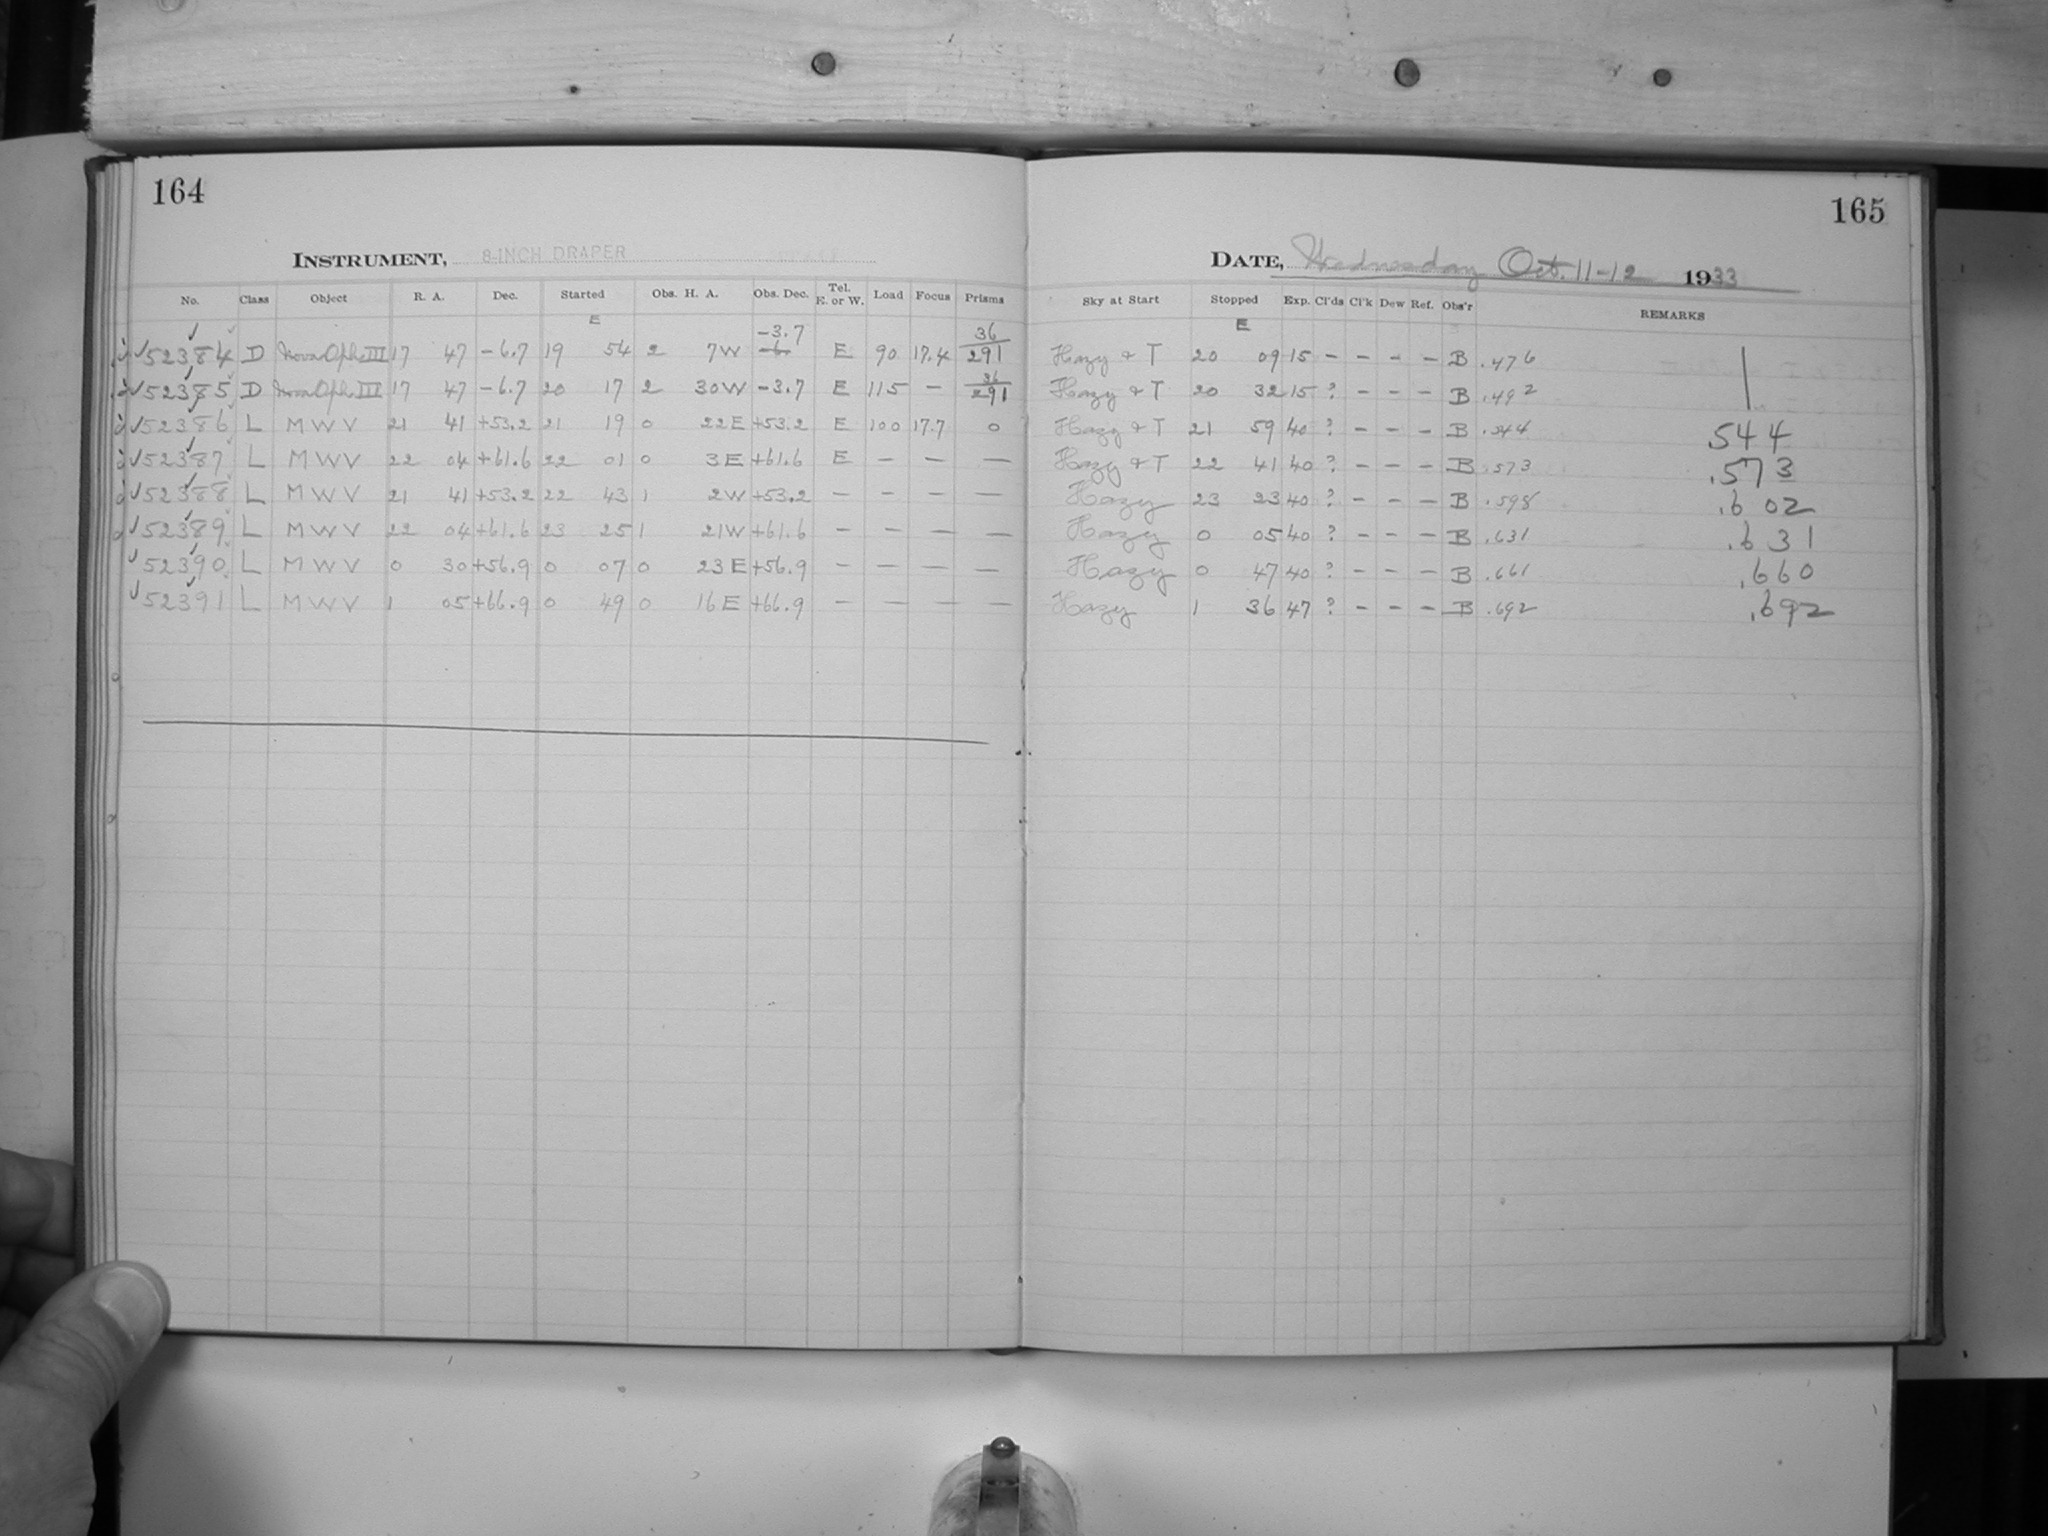 164
INSTRUMENT, 8-INCH DRAPER
No. Class Object R. A. Dec. Started Obs. H. A. Obs. Dec. Tel. E. or W. Load Focus Prisms
E
52384 D Nova Oph III 17 47 -6.7 19 54 2 7W -3.7 -6. E 90 17.4 36/291
52385 D Nova Oph III 17 47 -6.7 20 17 2 30W -3.7 E 115 - 36/291
52386 L MWV 21 41 +53.2 21 19 0 22E +53.2 E 100 17.7 0
52387 L MWV 22 04 +61.6 22 01 0 3E +61.6 E - - -
52388 L MWV 21 41 +53.2 22 43 1 2W +53.2 - - - -
52389 L MWV 22 04 +61.6 23 25 1 21W +61.6 - - - -
52390 L MWV 0 30 +56.9 0 07 0 23E +56.9 - - - -
52391 L MWV 1 05 +66.9 0 49 0 16E +66.9 - - - -
165
DATE, Wednesday Oct. 11-12 1933
Sky at Start Stopped Exp. Cl'ds Cl'k Dew Ref. Obs'r REMARKS
E
Hazy & T 20 09 15 - - - - B .476
Hazy & T 20 32 15 ? - - - B .492
Hazy & T 21 59 40 ? - - - B .544 .544
Hazy & T 22 41 40 ? - - - B .573 .573
Hazy 23 23 40 ? - - - B .598 .602
Hazy 0 05 40 ? - - - B .631 .631
Hazy 0 47 40 ? - - - B .661 .660
Hazy 1 36 47 ? - - - B .692 .692